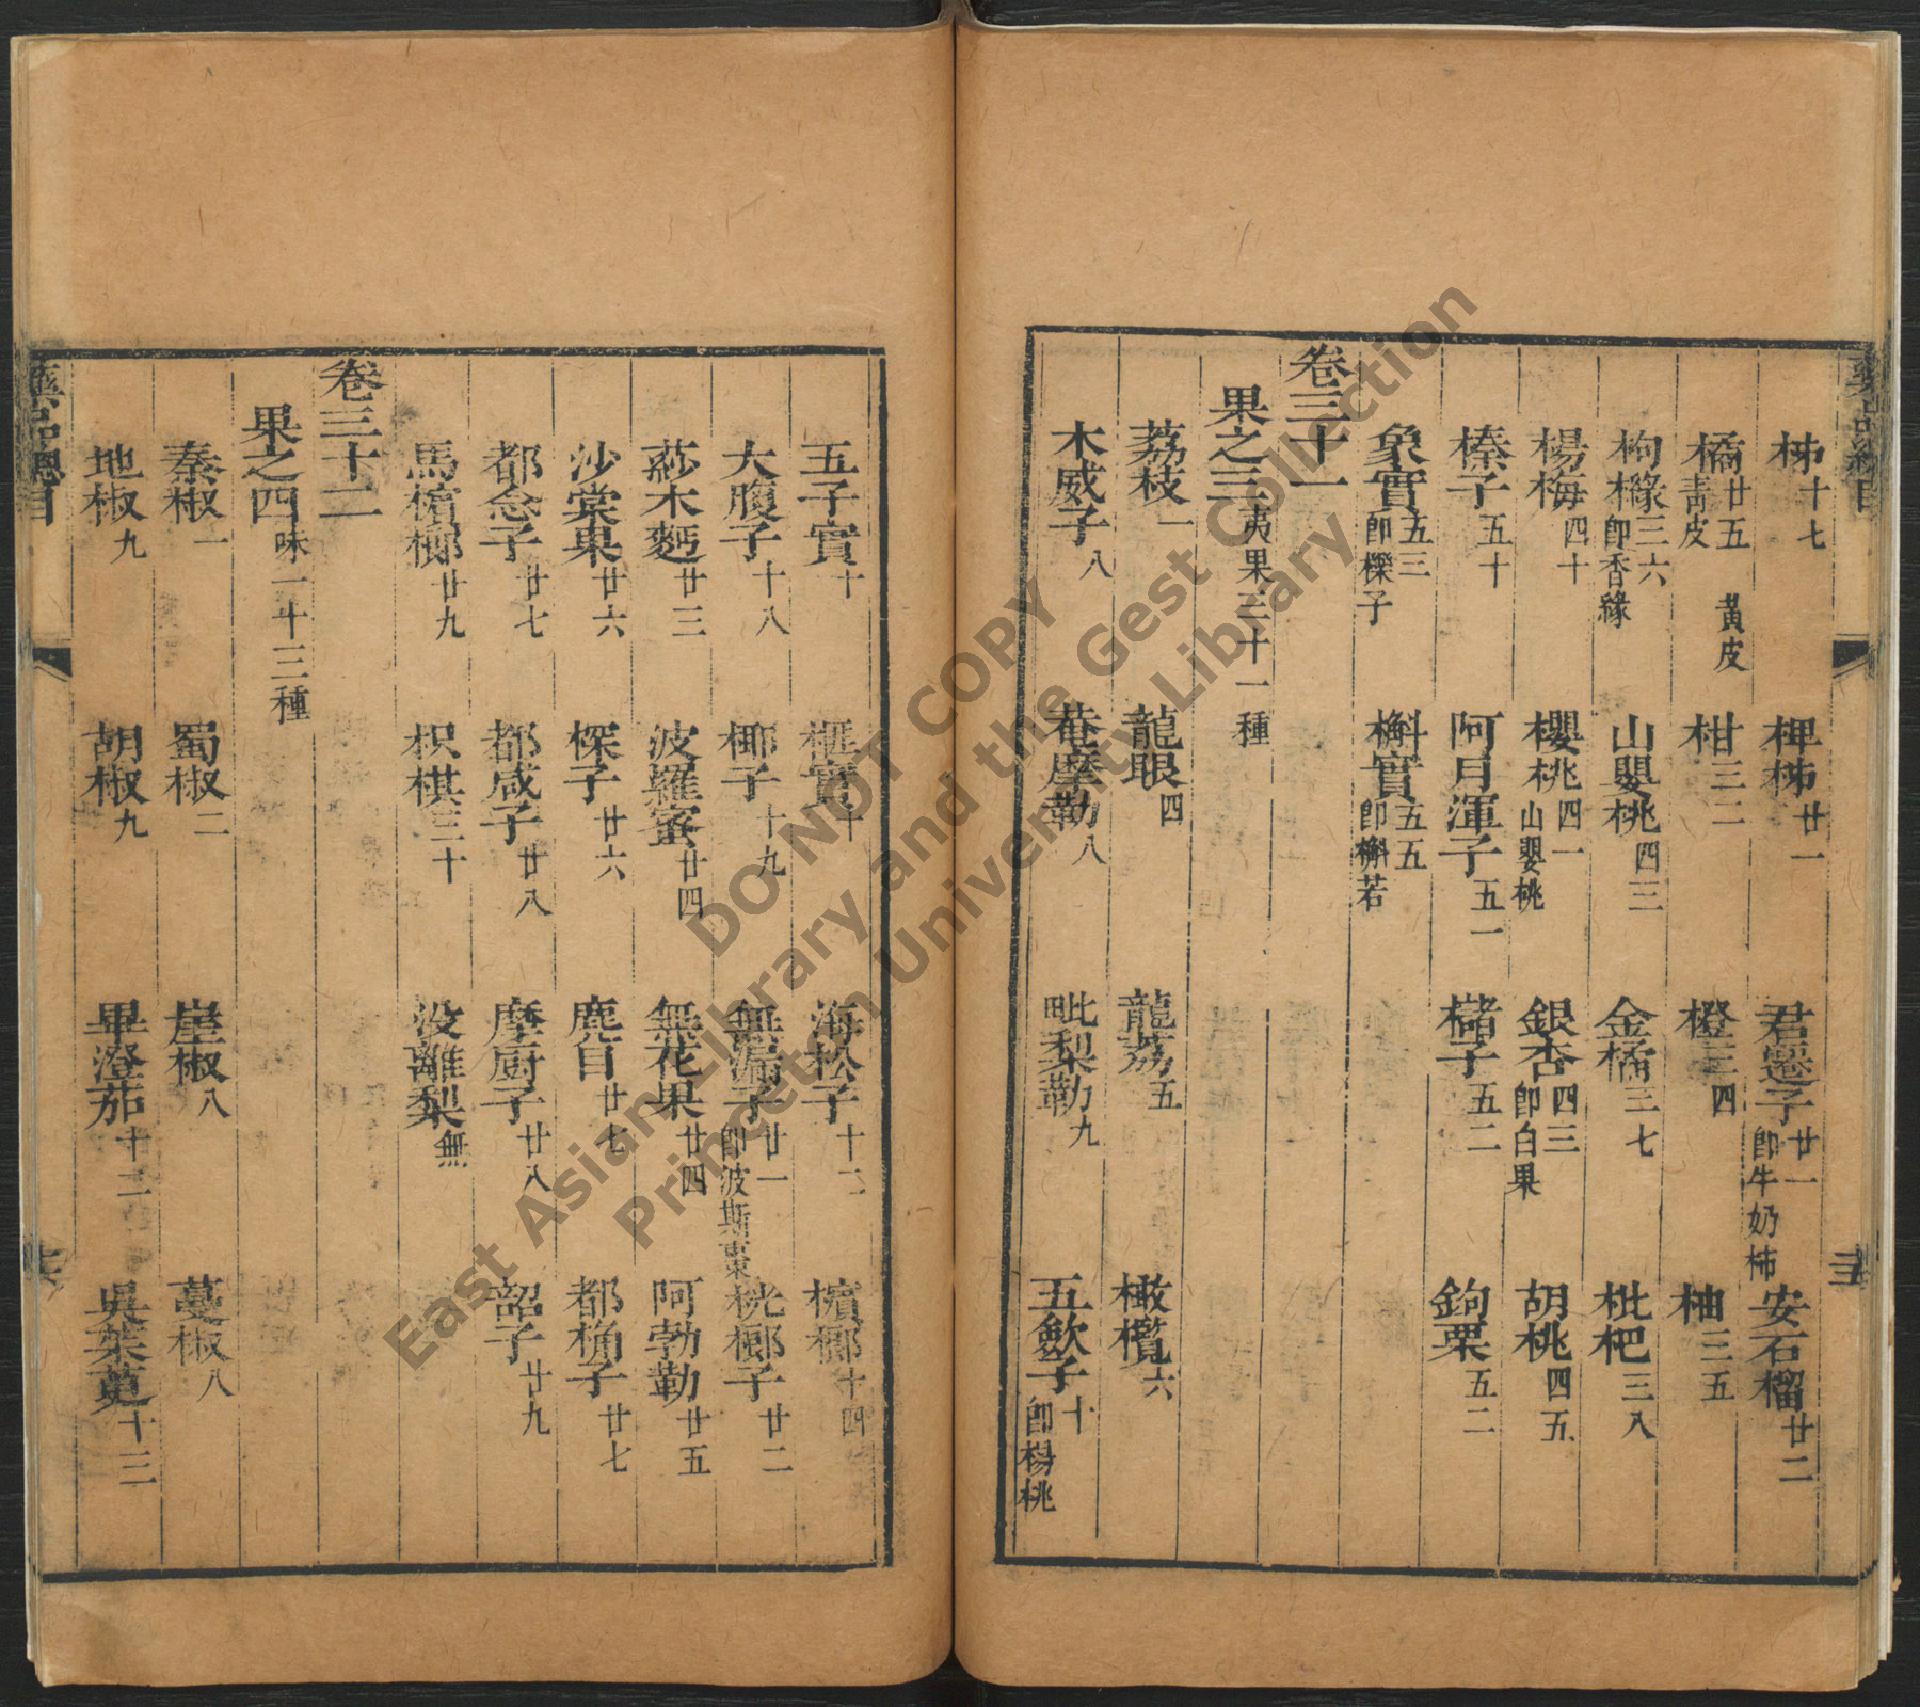 柹十七 椑柹廿一 君遷子廿一即牛奶柿 安石榴廿二
橘廿五青皮 黃皮 柑三二 橙三四 柚三五
枸櫞三六即香緣 山嬰桃四三 金橘三七 枇杷三八
楊梅四十 櫻桃四一山嬰桃 銀杏四三即白果 胡桃四五
榛子五十 阿月渾子五一 櫧子五二 鉤栗五二
象實五三即橡子 槲實五五即槲若
卷三十一
果之三夷果三十一種
荔枝一 龍眼四 龍荔五 橄欖六
木威子八 菴摩勒八 毗梨勒九 五斂子十即楊桃
五子實十 榧實十 海松子十二 檳榔十四
大腹子十八 椰子十九 無漏子廿一即波斯棗 桄榔子廿二
莎木麪廿三 波羅蜜廿四 無花果廿四 阿勃勒廿五
沙棠果廿六 棎子廿六 麂目廿七 都桷子廿七
都念子廿七 都咸子廿八 摩厨子廿八 韶子廿九
馬檳榔廿九 枳椇三十 没離梨無
卷三十二
果之四味一十三種
秦椒一 蜀椒二 崖椒八 蔓椒八
地椒九 胡椒九 畢澄茄十二 吳茱萸十三
藥品總目
DO NOT COPY
East Asian Library and the Gest Collection
Princeton University Library